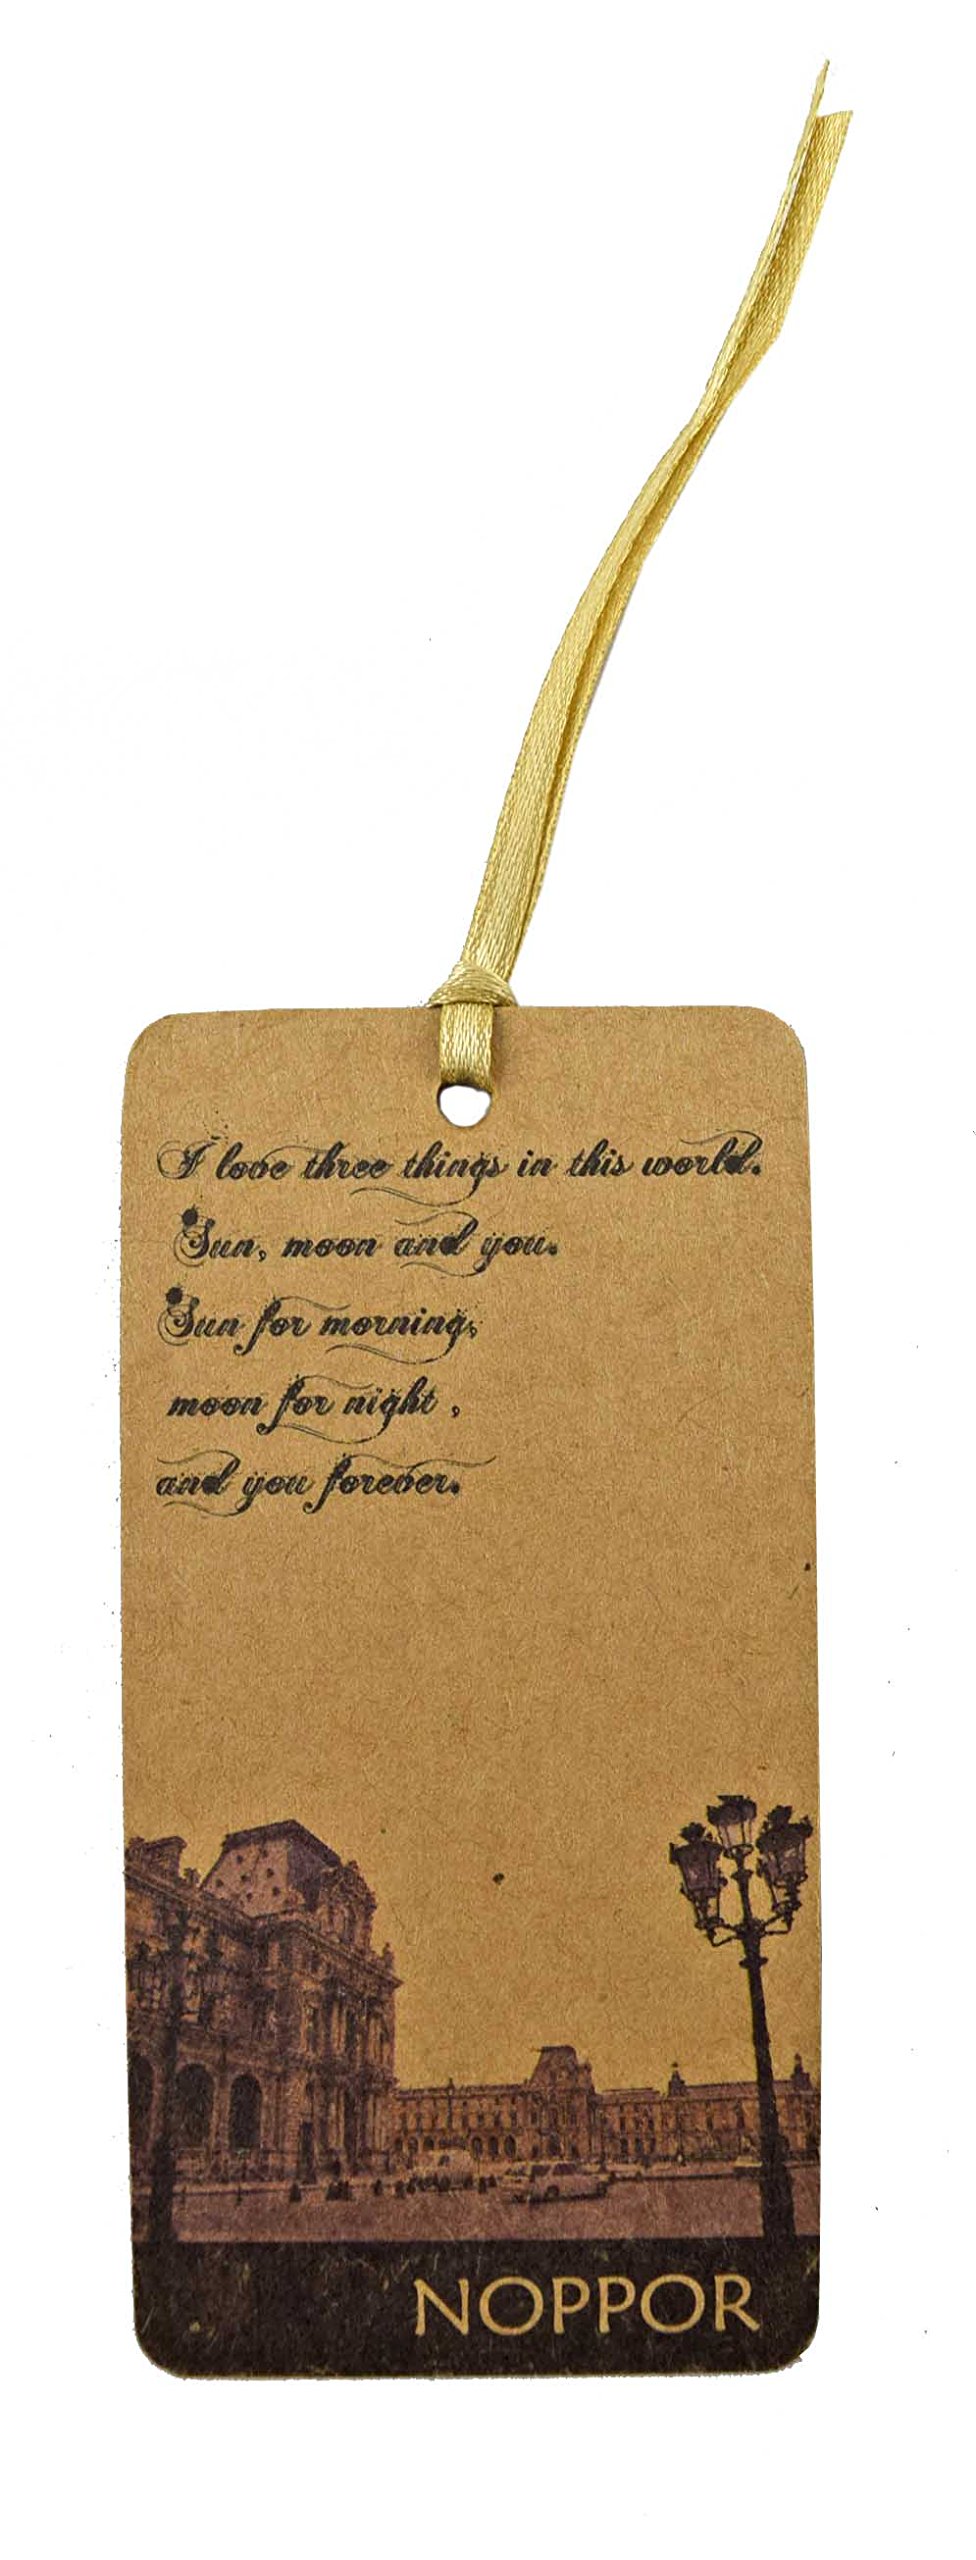 I love three things in this world.
Sun, moon and you.
Sun for morning,
moon for night ,
and you forever.
NOPPOR